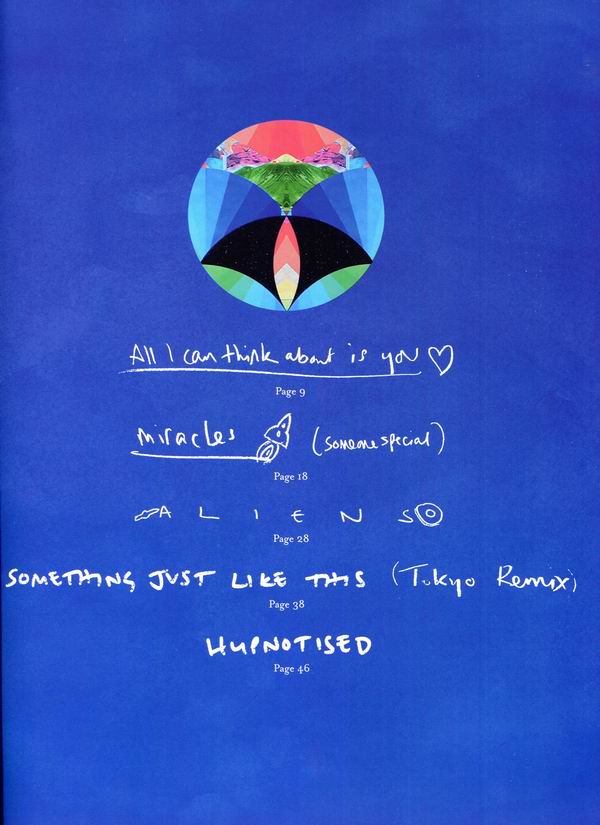 All I can think about is you
Page 9
Miracles (someone special)
Page 18
ALIENS
Page 28
SOMETHING JUST LIKE THIS (Tokyo Remix)
Page 38
HYPNOTISED
Page 46